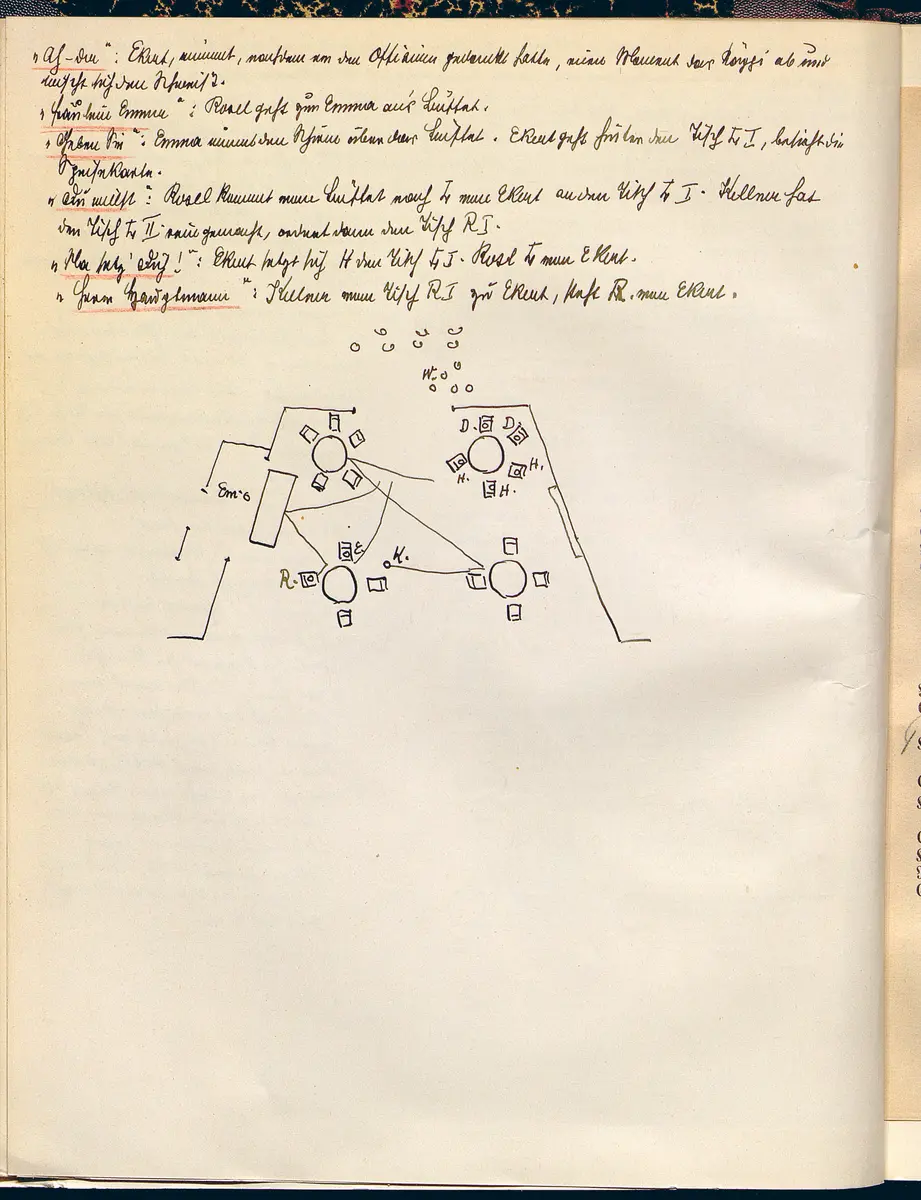 „Ah – der“: Ekert, nimmt, nachdem er den Offizieren gedankt hatte, einen Moment das Käppi ab und
wischt sich den Schweiß.
„Fräulein Emma“: Rosel geht zur Emma ans Büffet.
„Geben Sie“: Emma nimmt den Schirm über das Büffet. Ekert geht hinter den Tisch L I, besieht die
Speisekarte.
„Du willst“: Rosel kommt vom Büffet nach L von Ekert an den Tisch L I. Kellner hat
den Tisch L II rein gemacht, ordnet dann den Tisch R I.
„Na setz' dich!“: Ekert setzt sich H den Tisch L I. Rosl L von Ekert.
„Herr Hauptmann“: Kellner vom Tisch R I zu Ekert, steht R. von Ekert.
W.
D. D.
H. H.
H.
Em.
E. K.
R.